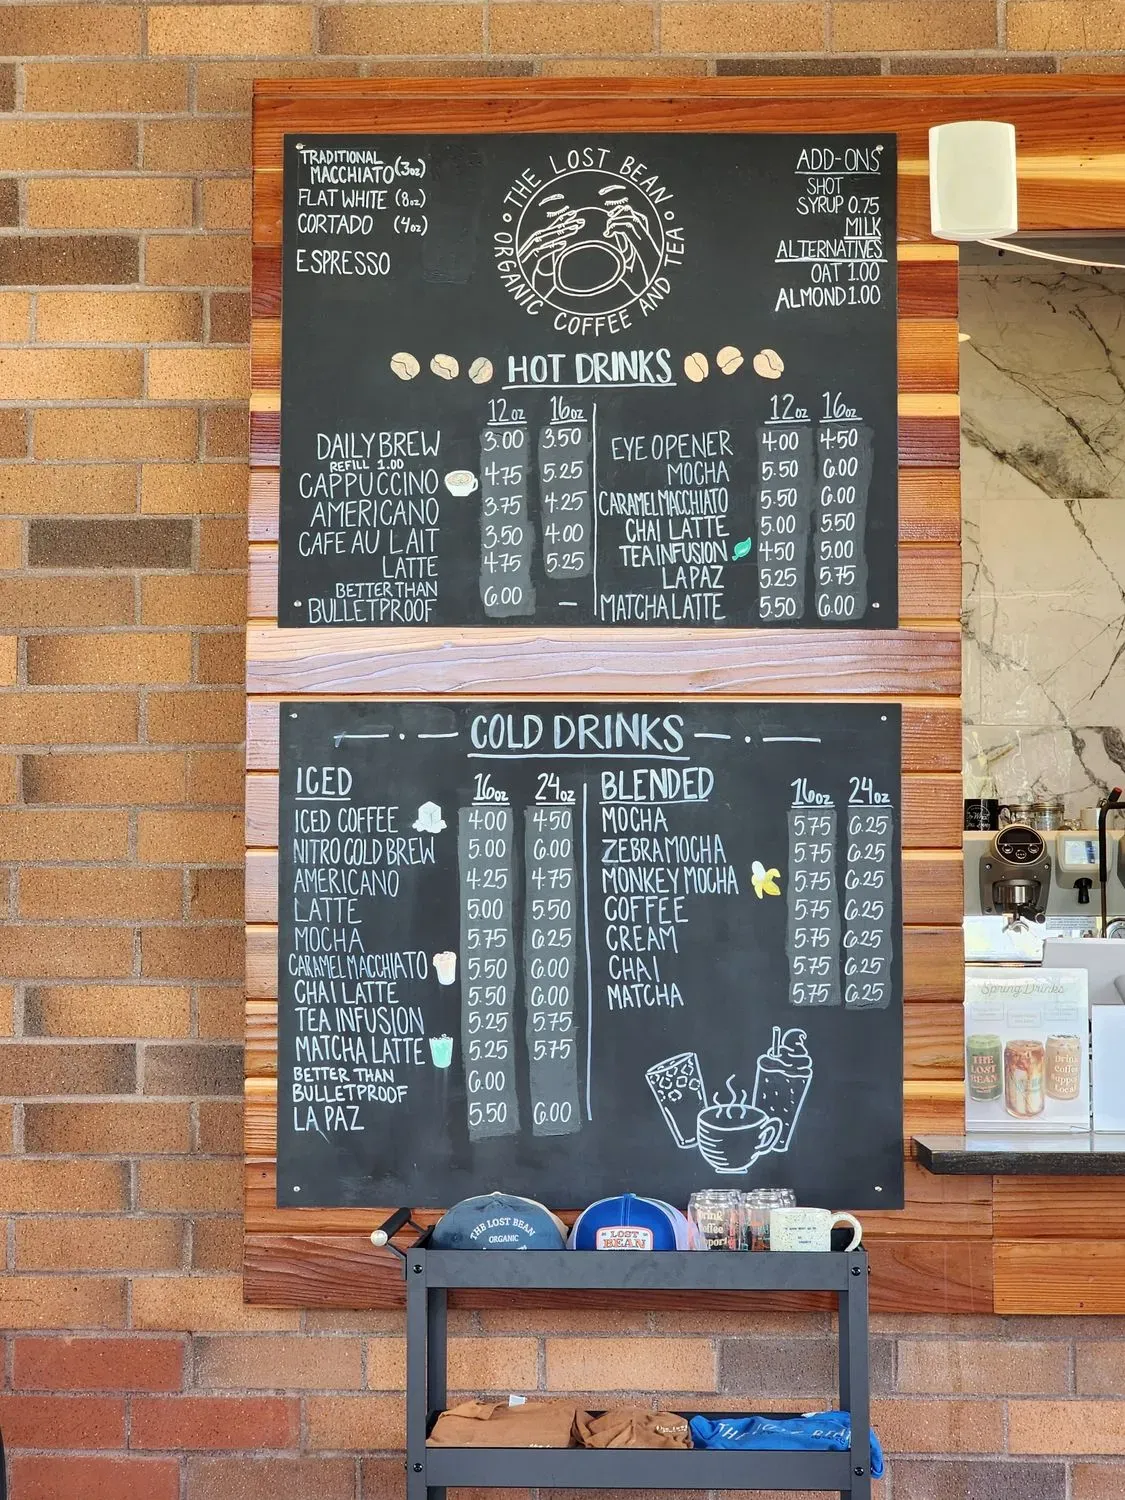 TRADITIONAL
MACCHIATO (3oz)
FLAT WHITE (8oz)
CORTADO (4oz)
ESPRESSO
THE LOST BEAN
ORGANIC COFFEE AND TEA
ADD-ONS
SHOT
SYRUP 0.75
MILK
ALTERNATIVES
OAT 1.00
ALMOND 1.00
HOT DRINKS
12oz 16oz
DAILY BREW 3.00 3.50
REFILL 1.00
CAPPUCCINO 4.75 5.25
AMERICANO 3.75 4.25
CAFE AU LAIT 3.50 4.00
LATTE 4.75 5.25
BETTER THAN
BULLETPROOF 6.00 —
12oz 16oz
EYE OPENER 4.00 4.50
MOCHA 5.50 6.00
CARAMEL MACCHIATO 5.50 6.00
CHAI LATTE 5.00 5.50
TEA INFUSION 4.50 5.00
LA PAZ 5.25 5.75
MATCHA LATTE 5.50 6.00
COLD DRINKS
ICED 16oz 24oz
ICED COFFEE 4.00 4.50
NITRO COLD BREW 5.00 6.00
AMERICANO 4.25 4.75
LATTE 5.00 5.50
MOCHA 5.75 6.25
CARAMEL MACCHIATO 5.50 6.00
CHAI LATTE 5.50 6.00
TEA INFUSION 5.25 5.75
MATCHA LATTE 5.25 5.75
BETTER THAN
BULLETPROOF 6.00
LA PAZ 5.50 6.00
BLENDED 16oz 24oz
MOCHA 5.75 6.25
ZEBRA MOCHA 5.75 6.25
MONKEY MOCHA 5.75 6.25
COFFEE 5.75 6.25
CREAM 5.75 6.25
CHAI 5.75 6.25
MATCHA 5.75 6.25
Spring Drinks
THE
LOST
BEAN
Drink
Coffee
Support
Local
THE LOST BEAN
ORGANIC
LOST
BEAN
Drink
Coffee